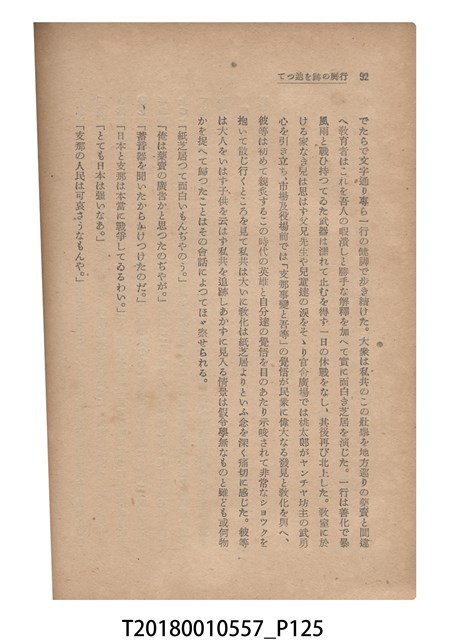 92
行脚の跡を追つて
でたらで文字通り専ら一行の健脚で歩き續けた。大衆は私共のこの壯擧を地方巡りの藥賣と間違
へ教育者はこれを吾人の暇潰しと勝手な解釋を加へて實に面白き芝居を演じた。一行は善化で暴
風雨と戰ひ持つてゐた武器は濡れて止むを得ず一日の休戰をなし、其後再び北上した。教室に於
ける家なき兒は思はず父兄先生や兒童達の涙をそゝり官舍廣場では桃太郎がヤンチヤ坊主の武勇
心を引き立ち、市場及役場前では「支那事變と吾等」の覺悟が民衆に偉大なる發見と教化を與へ、
彼等は初めて觀炙するこの時代の英雄と自分達の覺悟を目のあたり示唆されて非常なショツクを
抱いて散じ行くところを見て私共は大いに教化は紙芝居よりといふ念を深く痛切に感じた。彼等
は大人をいはず子供を云はず私共を追跡しあかずに見入る情景は假令學無なものと雖ども或何物
かを捉へて歸つたことはその會話によつてほゞ察せられる。
「紙芝居つて面白いもんぢやのう。」
「俺は藥賣の廣告かと思つたのぢやが。」
「蓄音器を聞いたからかけつけたのだ。」
「日本と支那は本當に戰爭してゐるわい。」
「とても日本は強いなあ。」
「支那の人民は可哀さうなもんや。」
T20180010557_P125